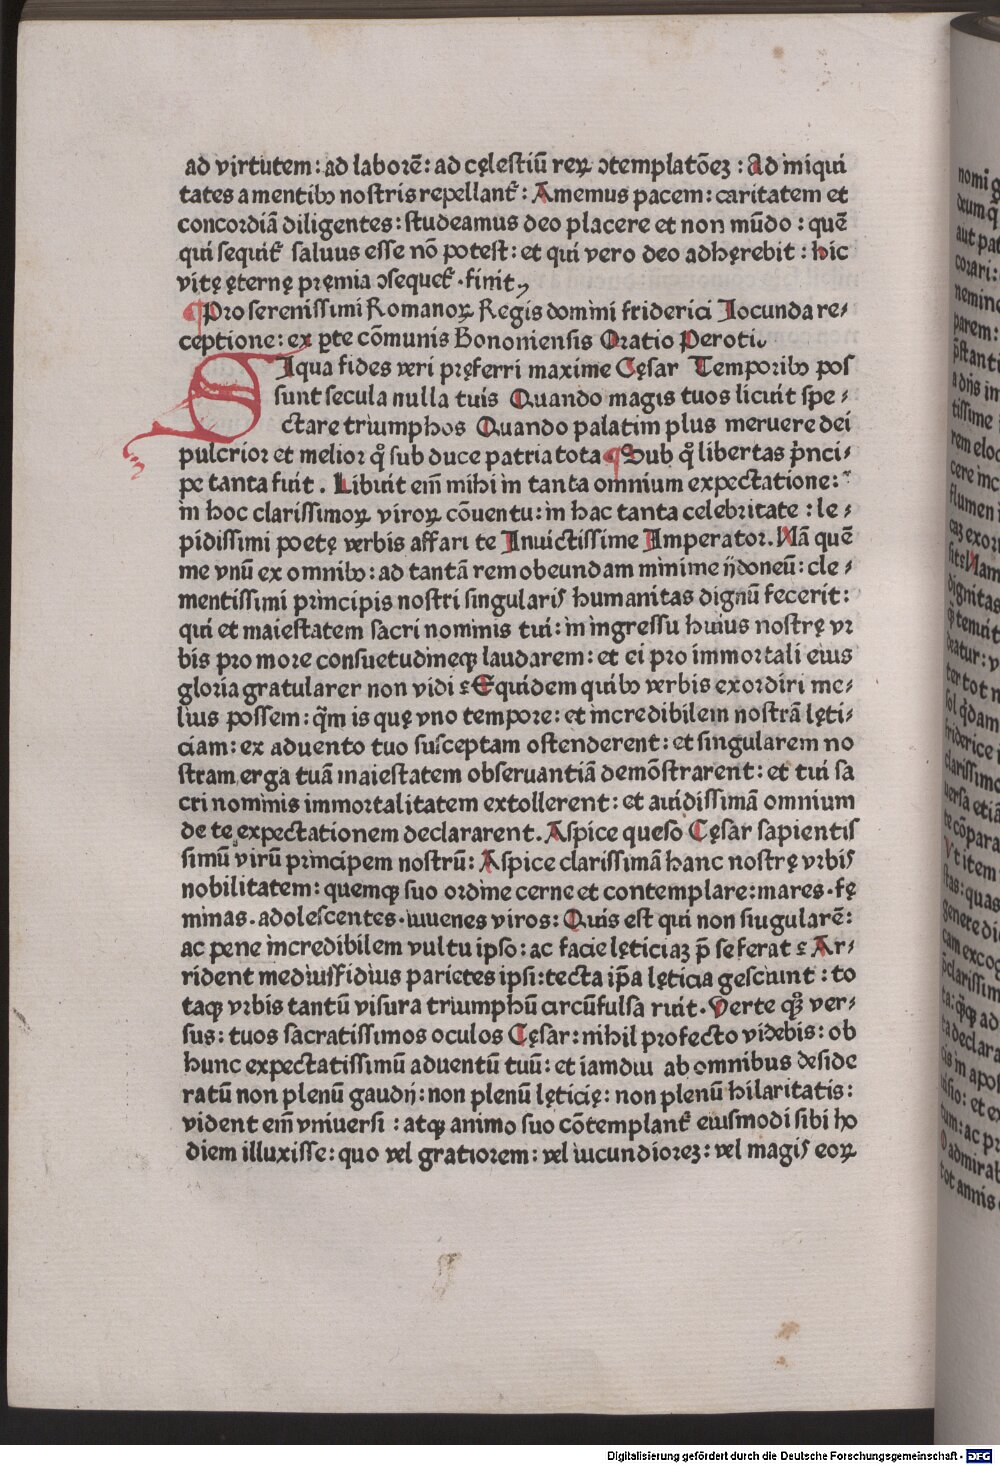 ad virtutem: ad laborē: ad cęlestiū reꝝ ↄtemplatōeꝫ: Ad iniqui
tates a mentibꝰ nostris repellantᷣ: Amemus pacem: caritatem et
concordiā diligentes: studeamus deo placere et non mūdo: quē
qui sequitᷣ saluus esse nō potest: et qui vero deo adhęrebit: hic
vitę ęternę pręmia ↄsequetᷣ. finit
¶ Pro serenissimi Romanoꝝ Regis domini friderici Jocunda re⸗
ceptione: ex ꝑte cōmunis Bononiensis Oratio Peroti
SIqua fides veri pręferri maxime Cęsar Temporibꝰ pos
sunt secula nulla tuis Quando magis tuos licuit spe⸗
ctare triumphos Quando palatim plus meruere dei
pulcrior et melior qͥ sub duce patria tota ¶ Sub qͦ libertas p̄nci⸗
pe tanta fuit. Libuit eīn mihi in tanta omnium expectatione:
in hoc clarissimoꝝ viroꝝ cōuentu: in hac tanta celebritate: le⸗
pidissimi poetę verbis affari te Inuictissime Imperator. Nā quē
me vnū ex omnibꝰ: ad tantā rem obeundam minime ijdoneū: cle⸗
mentissimi principis nostri singularis humanitas dignū fecerit:
qui et maiestatem sacri nominis tui: in ingressu huius nostrę vr
bis pro more consuetudineqꝫ laudarem: et ei pro immortali eius
gloria gratularer non vidi: Equidem quibꝰ verbis exordiri me⸗
lius possem: q̄m is quę vno tempore: et incredibilem nostrā lęti⸗
ciam: ex aduento tuo susceptam ostenderent: et singularem no
stram erga tuā maiestatem obseruantiā demōstrarent: et tui sa
cri nominis immortalitatem extollerent: et auidissimā omnium
de te expectationem declararent. Aspice queso Cęsar sapientis
simū virū principem nostrū: Aspice clarissimā hanc nostrę vrbis
nobilitatem: quemqꝫ suo ordine cerne et contemplare: mares. fę
minas. adolescentes. iuuenes viros: Quis est qui non siugularē:
ac pene incredibilem vultu ipso: ac facie lęticiaꝫ p̄ se ferat: Ar⸗
rident mediusfidius parietes ipsi: tecta ip̄a lęticia gesciunt: to
taqꝫ vrbis tantū visura triumphū circūfulsa ruit. Verte qͦꝫ ver⸗
sus: tuos sacratissimos oculos Cęsar: nihil profecto videbis: ob
hunc expectatissimū aduentū tuū: et iamdiu ab omnibus deside
ratū non plenū gaudij: non plenū lęticię: non plenū hilaritatis:
vident eīn vniuersi: atqꝫ animo suo cōtemplantᷣ eiusmodi sibi ho
diem illuxisse: quo vel gratiorem: vel iucundioreꝫ: vel magis eoꝝ
Digitalisierung gefördert durch die Deutsche Forschungsgemeinschaft - DFG